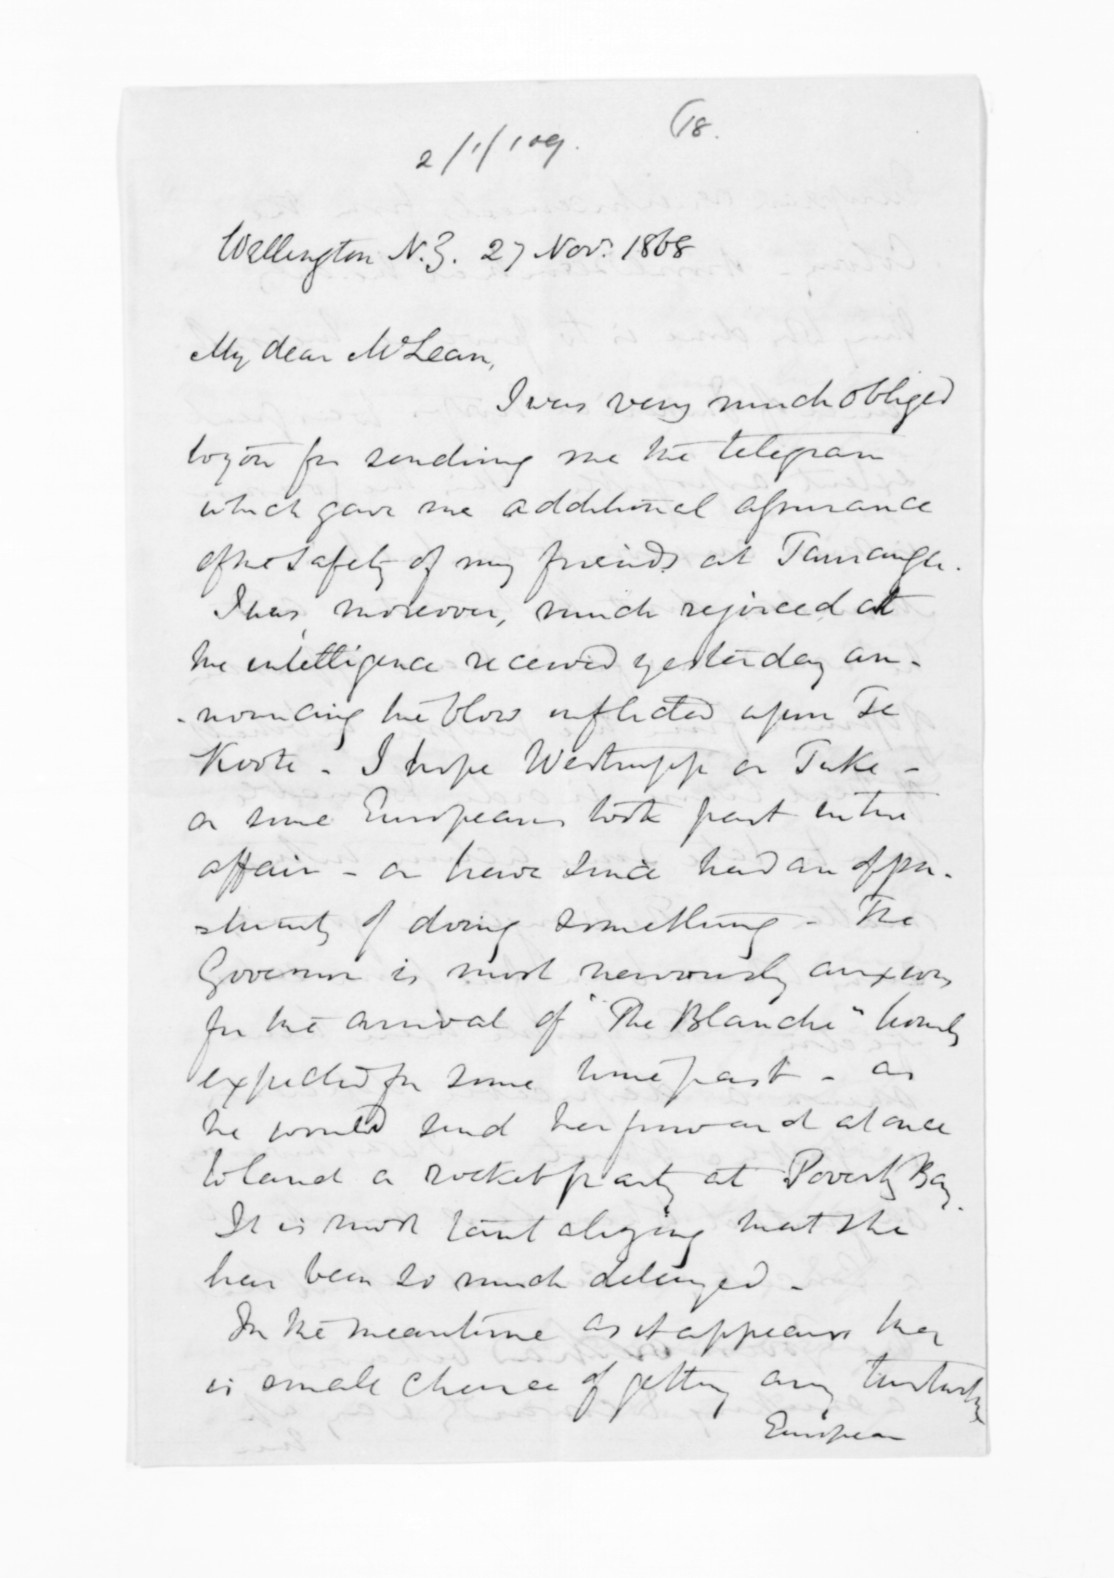 2/1/109.
(18.
Wellington N.Z. 27 Nov. 1868
My dear McLean,
I was very much obliged
to you for sending me the telegram
which gave me additional assurance
of the safety of my friends at Tauranga.
I was, moreover, much rejoiced at
the intelligence received yesterday an-
-nouncing the blow inflicted upon Te
Koote - I hope Westrupp or Tuke -
or some Europeans took part in the
affair - or have since had an oppor-
-tunity of doing something - The
Governor is most nervously anxious
for the arrival of "The Blanche" hourly
expected for some time past - as
he would send her forward at once
to land a rocket party at Poverty Bay.
It is most tantalizing that she
has been so much delayed -
In the meantime as it appears there
is small chance of getting any
European